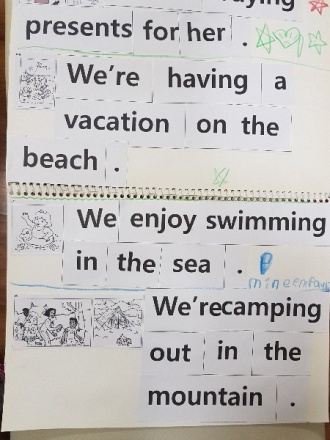 presents for her .
We're having a
vacation on the
beach .
We enjoy swimming
in the sea .
We'recamping
out in the
mountain .